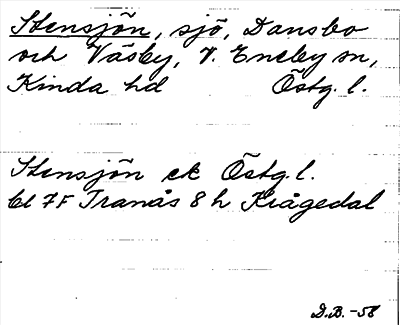 Stensjön, sjö, Dansbo
och Väsby, V. Eneby sn,
Kinda hd Östg. l.
Stensjön ek Östg. l.
bl 7F Tranås 8 h Krågedal
D.B. -58